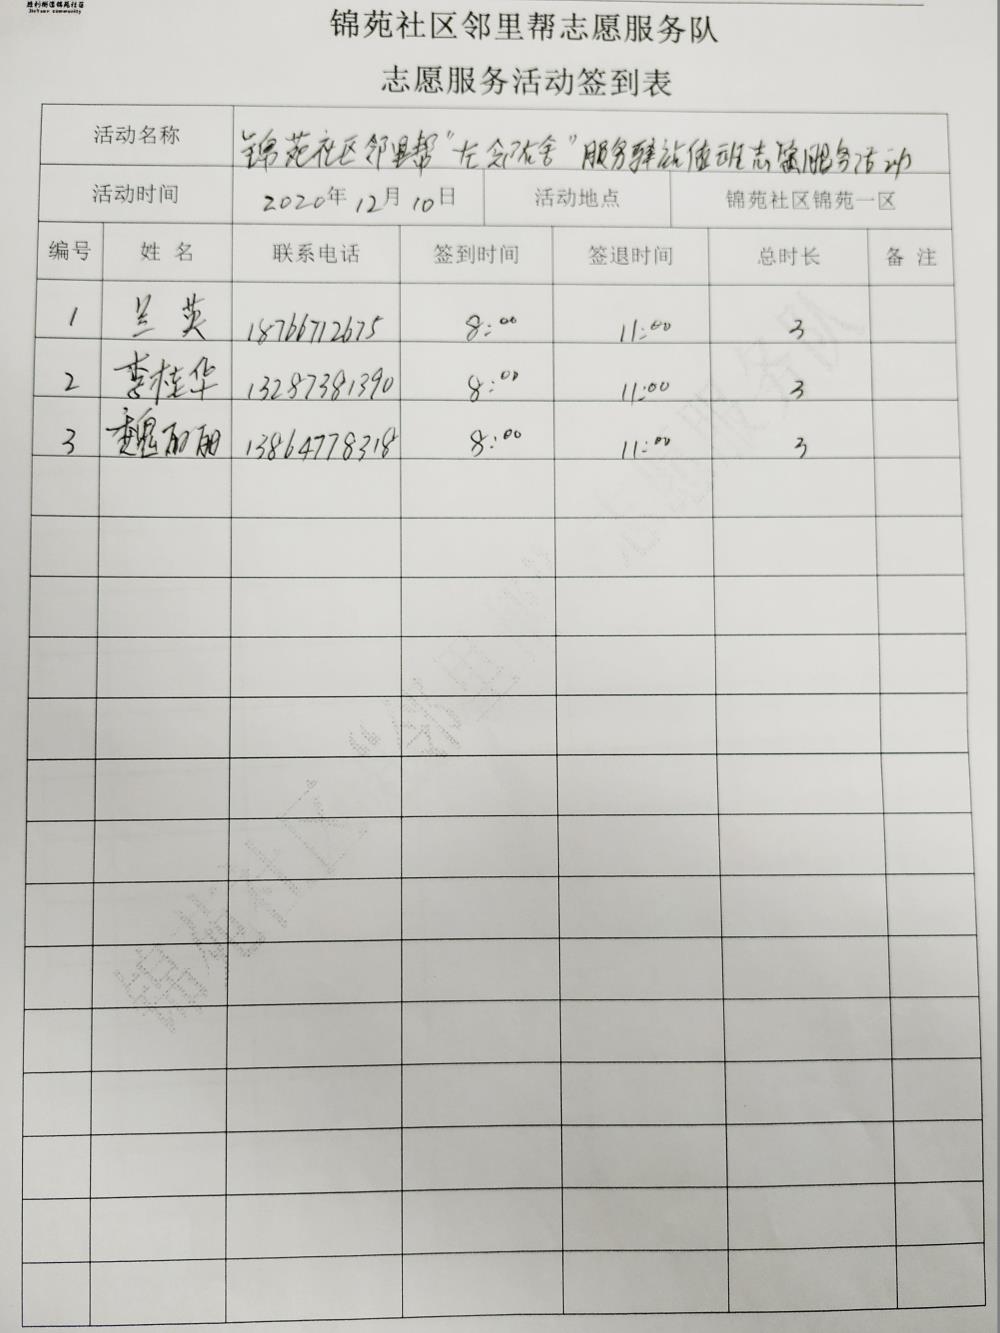 胜利街道锦苑社区
Jinyuan community
锦苑社区邻里帮志愿服务队
志愿服务活动签到表
活动名称 锦苑社区邻里帮“左邻右舍”服务驿站值班志愿服务活动
活动时间 2020年12月10日 活动地点 锦苑社区锦苑一区
编号 姓名 联系电话 签到时间 签退时间 总时长 备注
1 兰英 18766712675 8:00 11:00 3
2 李桂华 13287381390 8:00 11:00 3
3 魏丽丽 13864778318 8:00 11:00 3
锦苑社区“邻里帮”志愿服务队